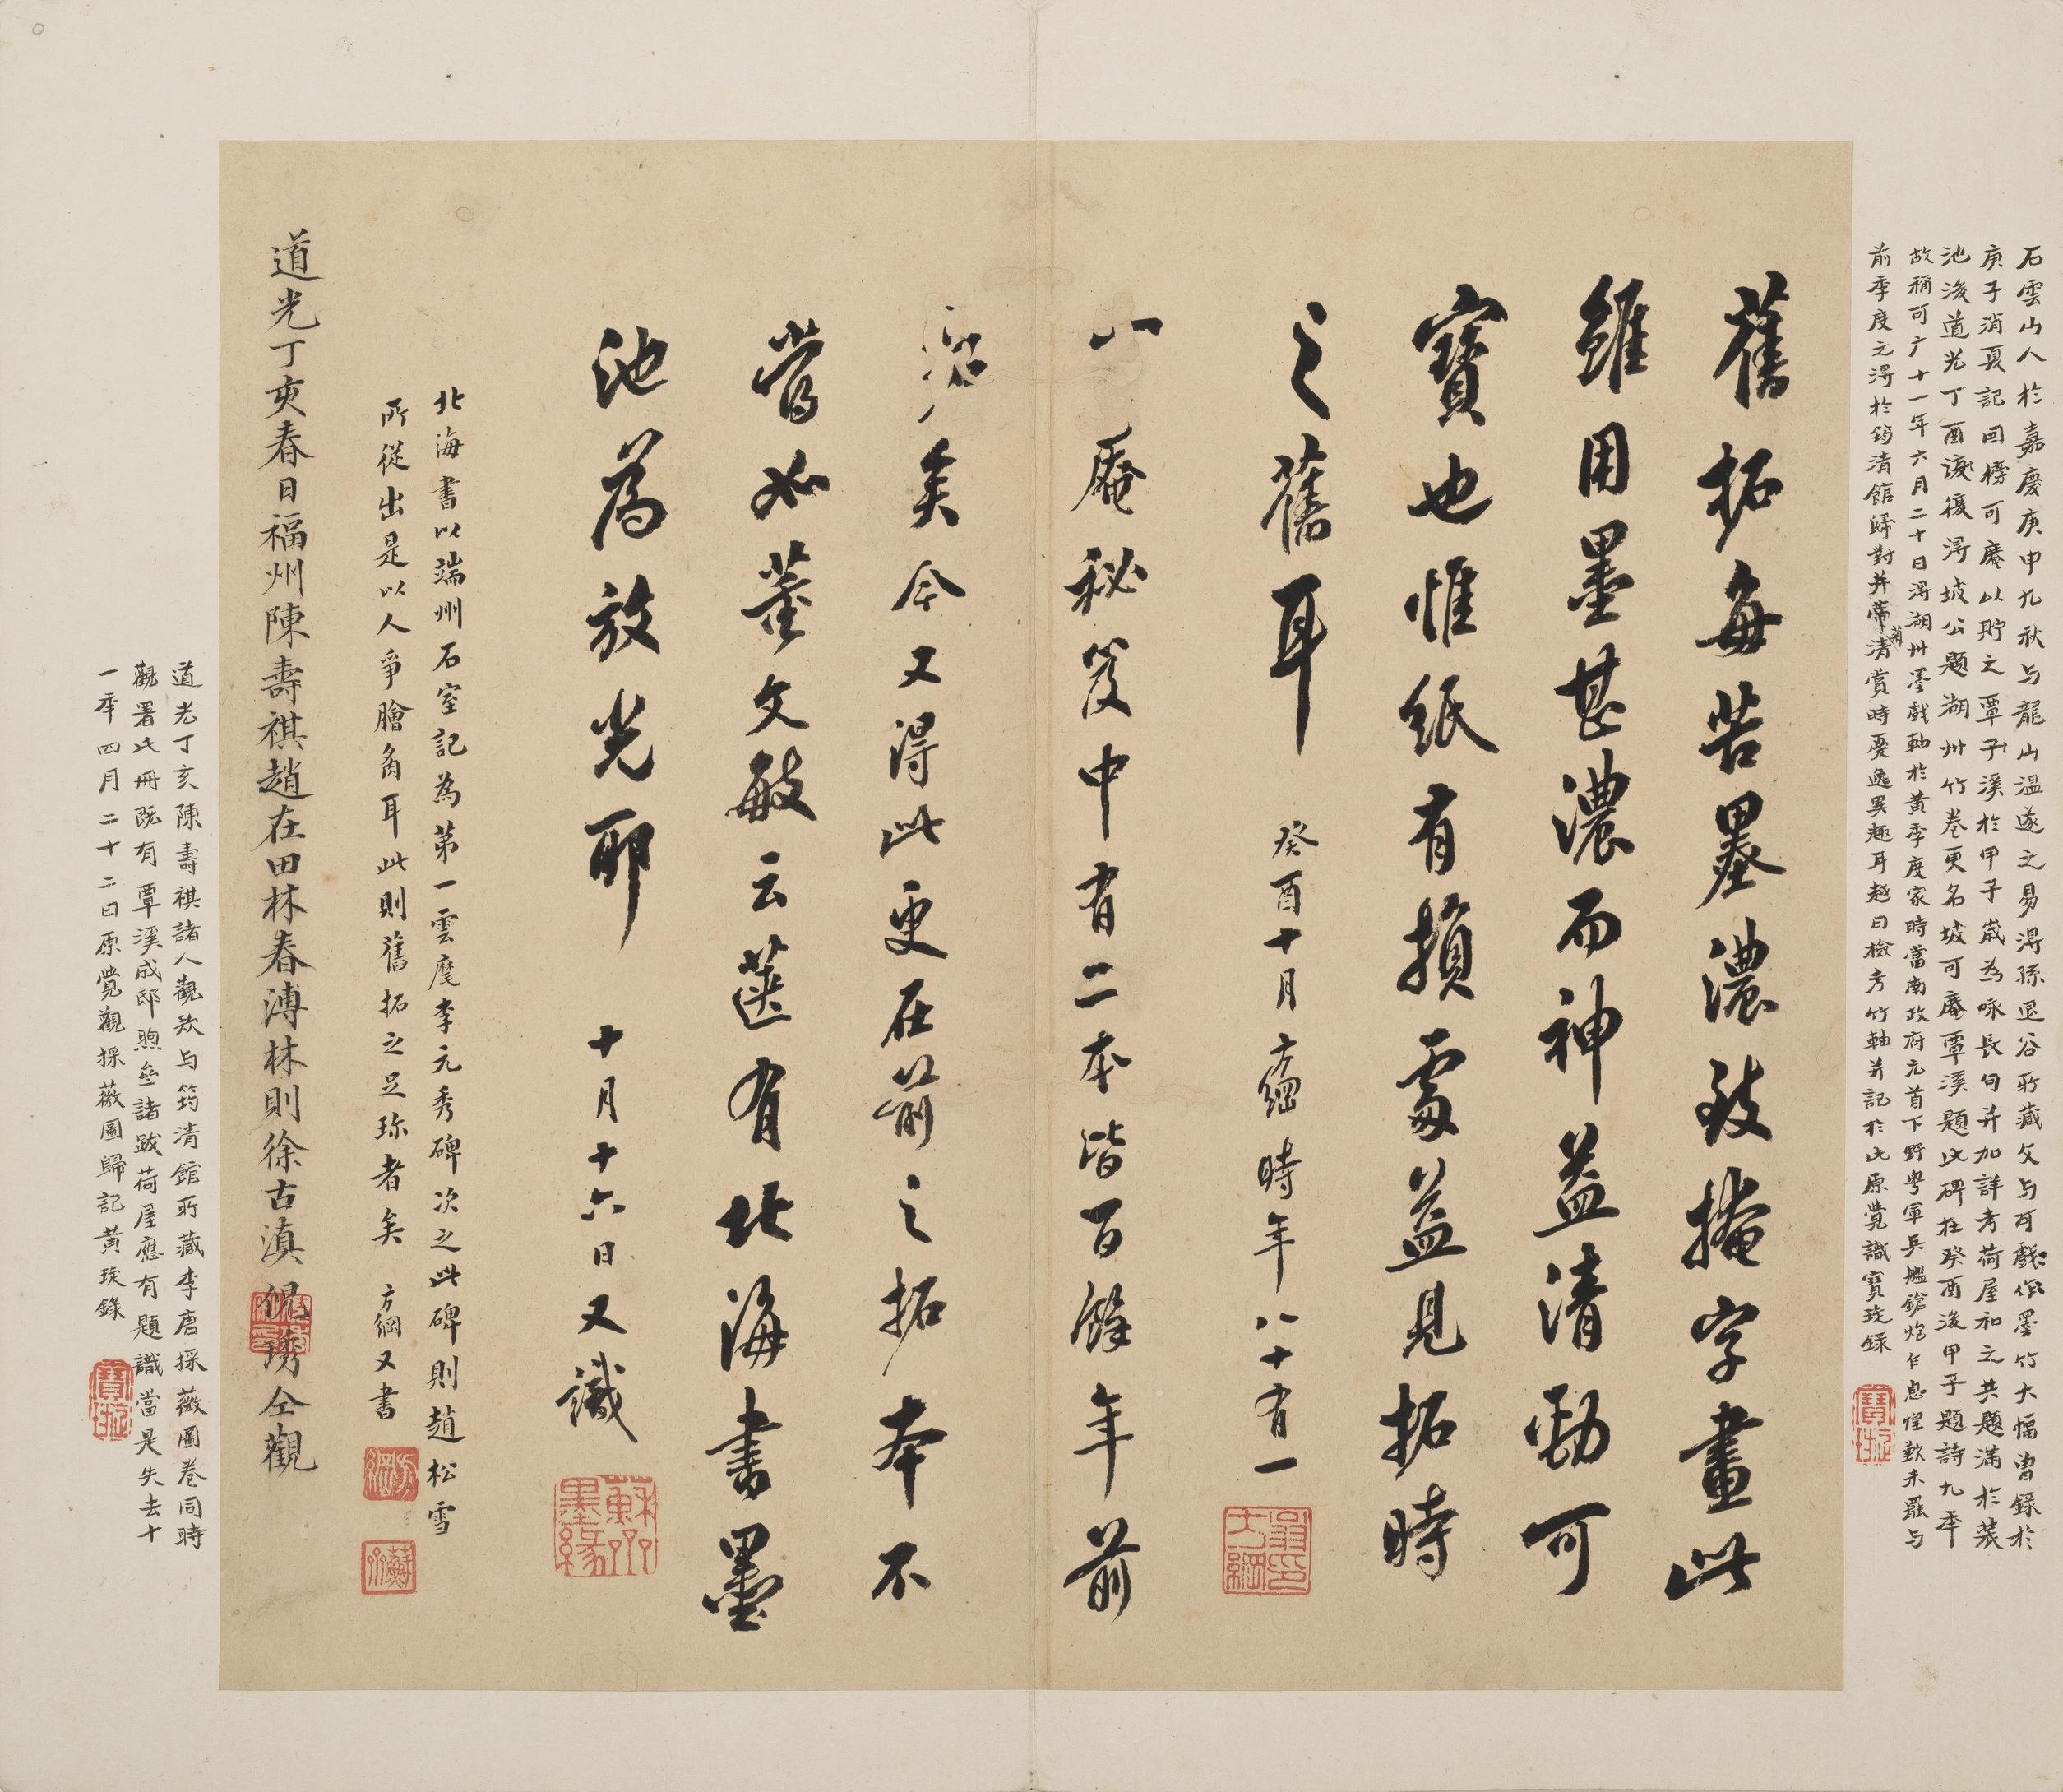 石雲山人於嘉慶庚申九秋与龍山溫遂之易得孫退谷所藏文与可戲作墨竹大幅曾錄於
庚子消夏記回榜可庵以貯之覃溪於甲子歲為咏長句并加詳考荷屋和之共題滿於裝
池後道光丁酉復得坡公題湖州竹卷更名坡可庵覃溪題此碑在癸酉後甲子題詩九年
故稱可广十一年六月二十日得湖州墨戲軸於黃季度家時當南政府元首下野粵軍兵艦鎗炮乍息惶歎未罷与
前季度元得於筠清館歸對并幬清賞時憂逸異趣耳越日檢考竹軸并記於此原覺識寶珽錄
舊拓每苦墨濃致掩字畫此
雖用墨甚濃而神益清勁可
寶也惟紙有損處益見拓時
之舊耳 癸酉十月方綱時年八十有一
可庵秘笈中有二本皆百餘年前
矣今又得此更在前之拓本不
啻如董文敏云篋有北海書墨
池為放光耶 十月十六日又識
北海書以端州石室記為第一雲麾李元秀碑次之此碑則趙松雪
所從出是以人爭膾炙耳此則舊拓之足珍者矣 方綱又書
道光丁亥春日福州陳壽祺趙在田林春溥林則徐古滇倪琇仝觀
道光丁亥陳壽祺諸人觀款与筠清館所藏李唐採薇圖卷同時
觀署此冊既有覃溪成邸煦齋諸跋荷屋應有題識當是失去十
一年四月二十二日原覺觀採薇圖歸記黃珽錄
翁方綱印
蘇齋墨緣
方綱